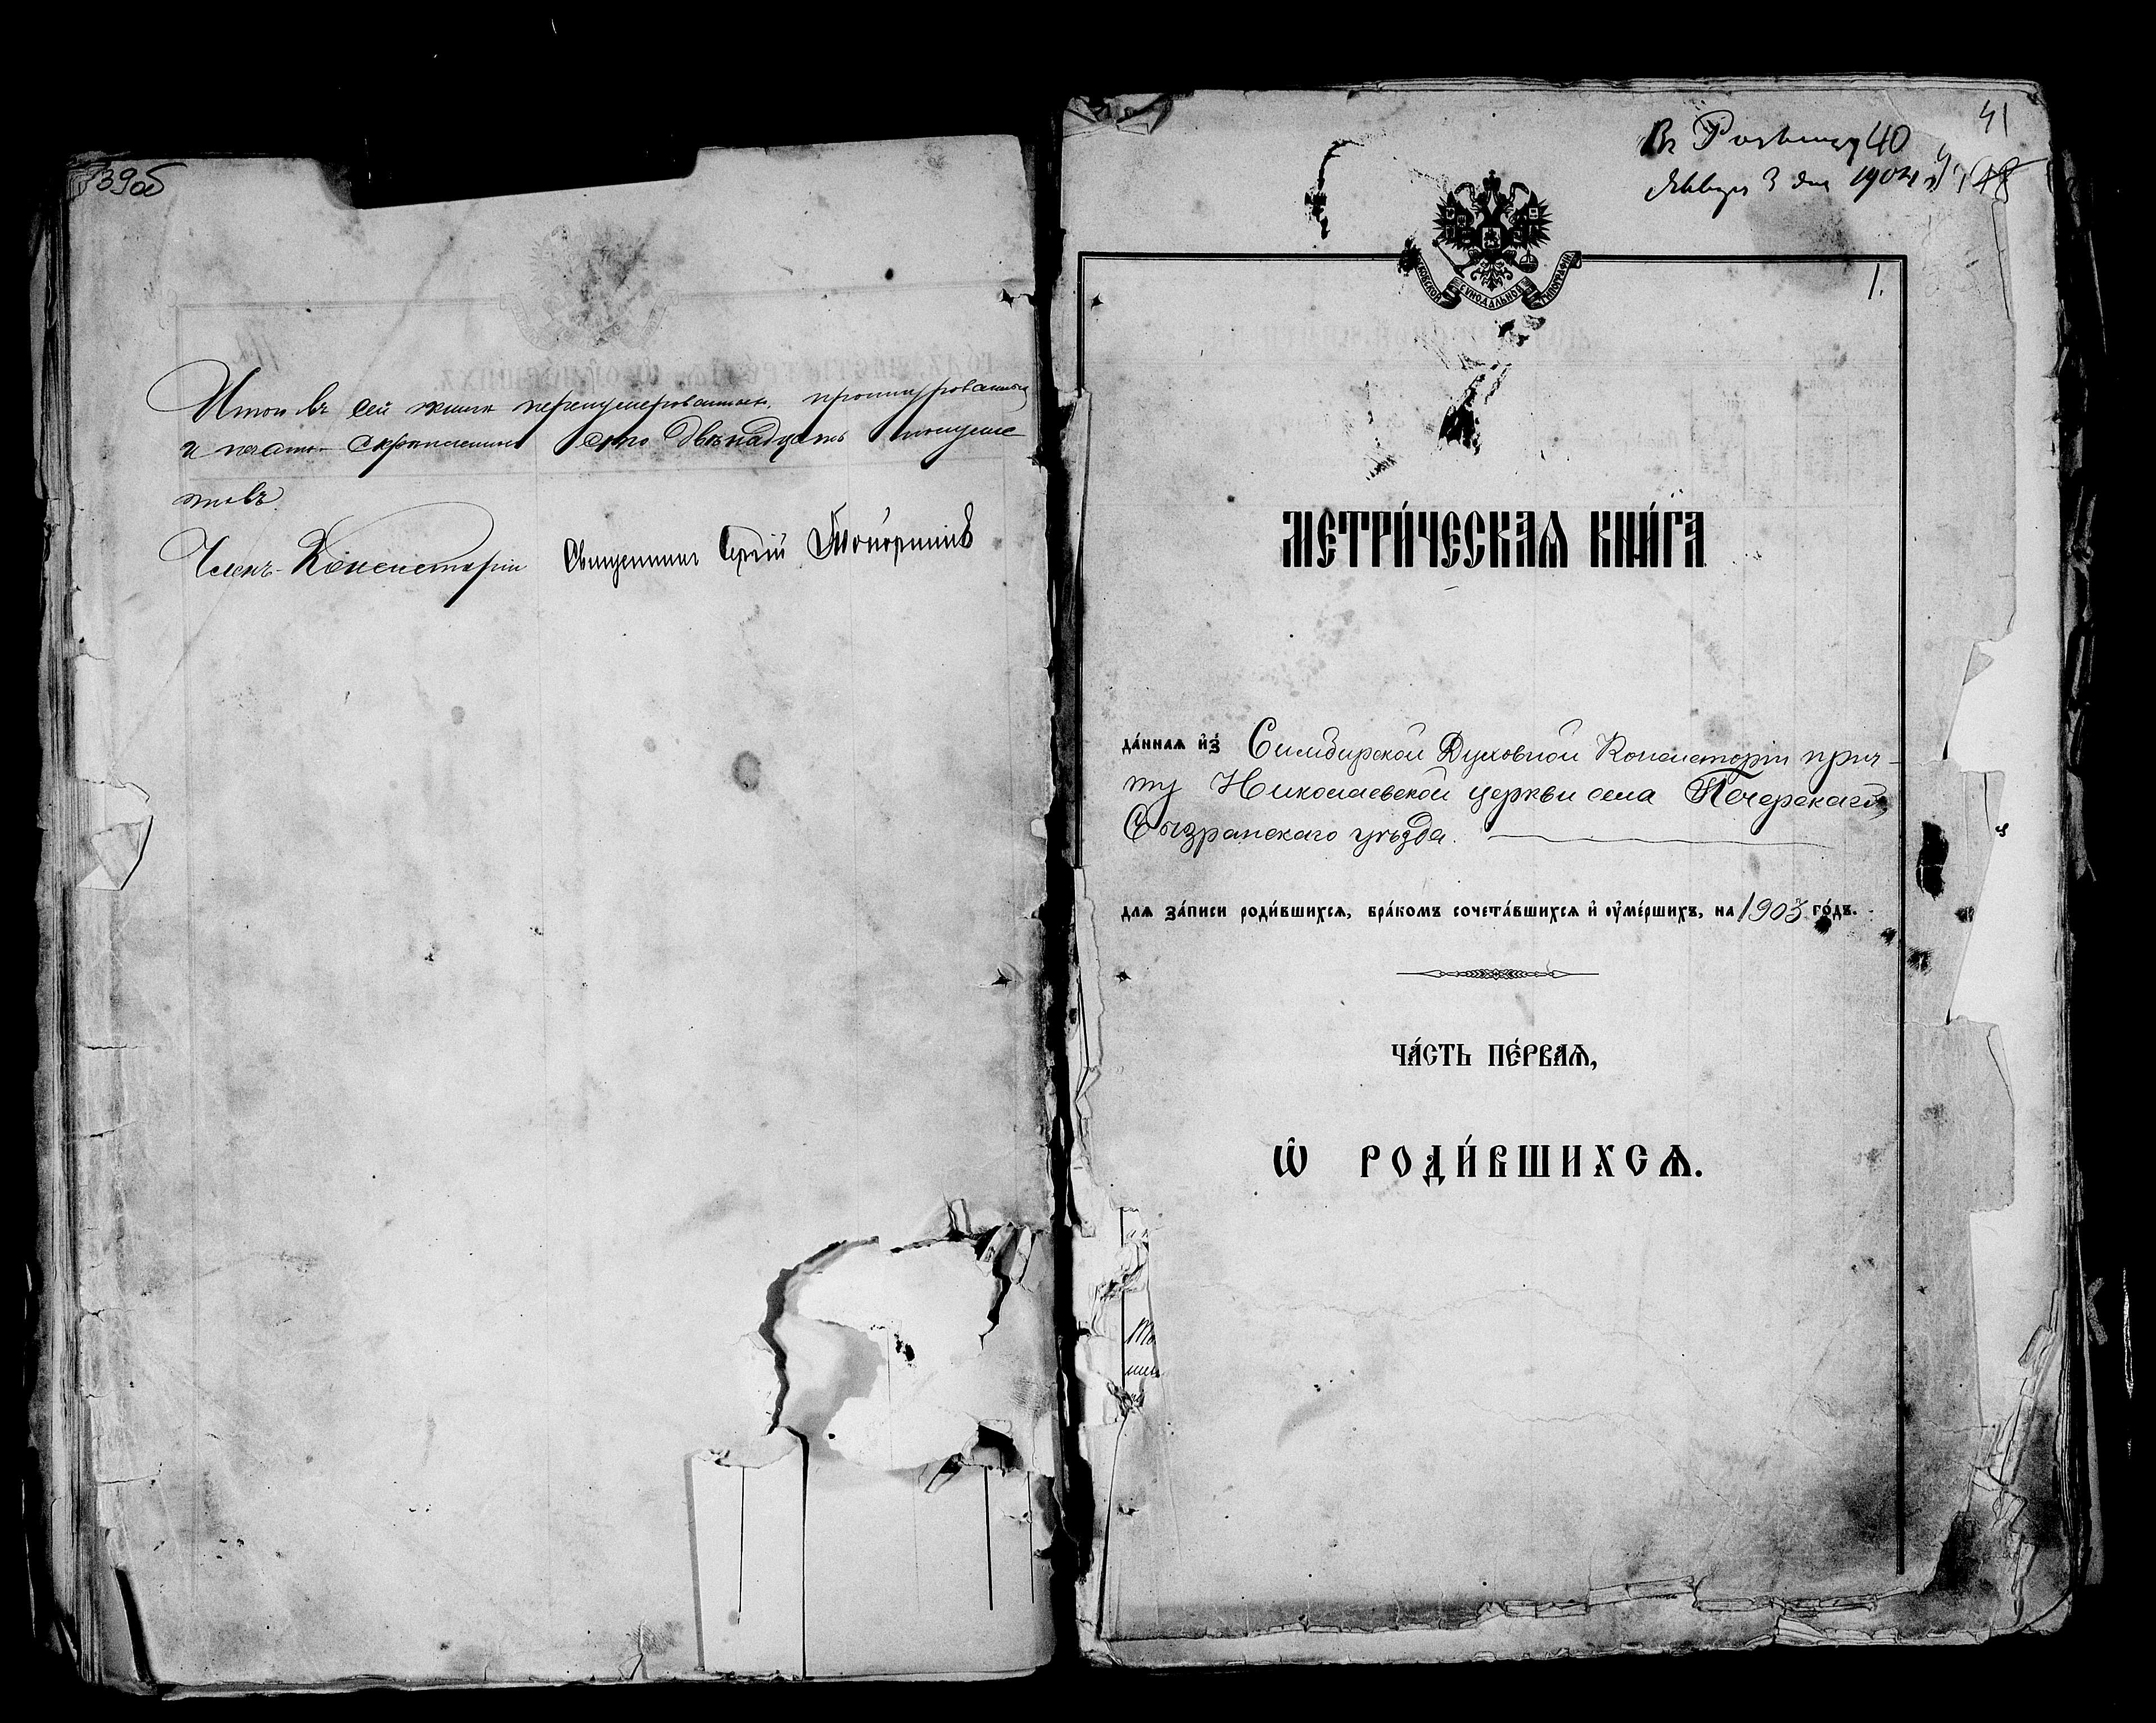 39об
Итого въ сей книгѣ перенумерованныхъ, прошнурованныхъ
и печатью скрѣпленныхъ сто двѣнадцать полулис-
товъ.
Членъ Консисторіи Священникъ Сергій Топорнинъ
41
40
Января 3 дня 1904 г.
48
1.
МОСКОВСКОЙ СУНОДАЛЬНОЙ ТИПОГРАФІИ
МЕТРИ́ЧЕСКАѦ КНИ́ГА
да́ннаѧ и҆з̾ Симбирской Духовной Консисторіи прич-
ту Николаевской церкви села Печерскаго,
Сызранскаго уѣзда.
длѧ за́писи роди́вшихсѧ, бра́комъ сочета́вшихсѧ и҆ ᲂу҆ме́ршихъ, на 1903 го́дъ.
ЧА́СТЬ ПЕ́РВАѦ,
Ѽ РОДИ́ВШИХСѦ.